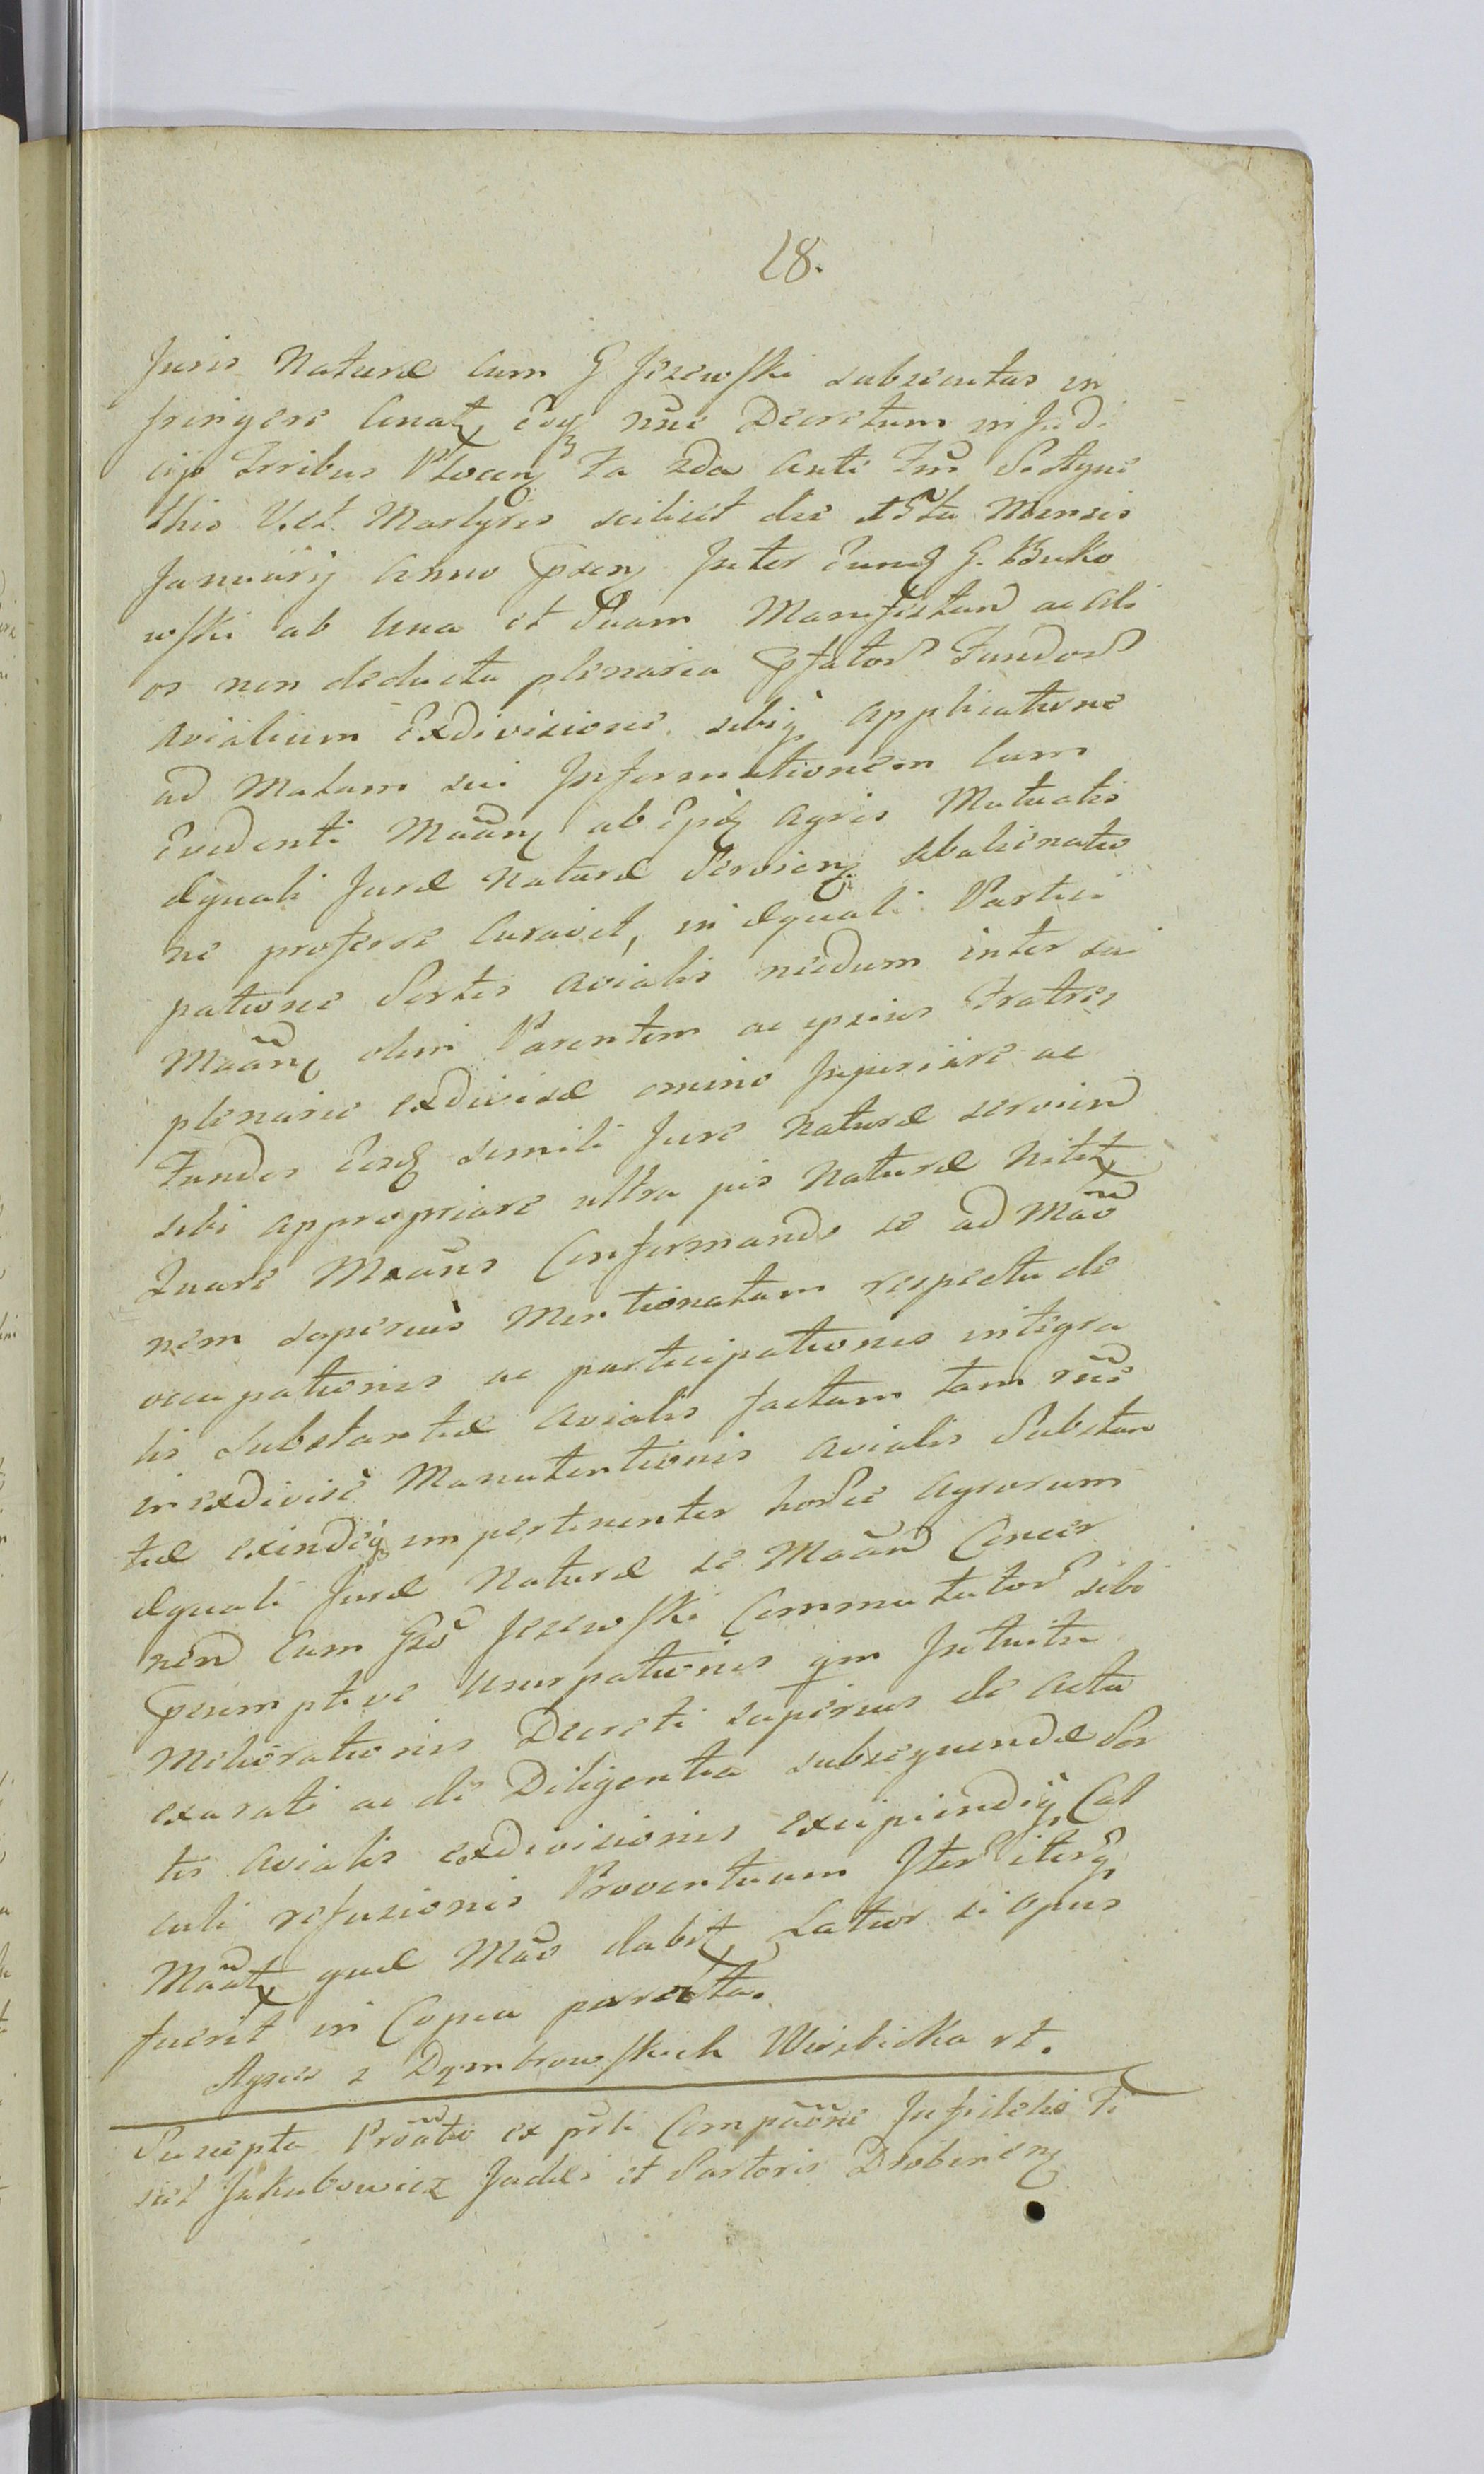 18.
Juris Naturæ cum G Jezewski subsecutas in
fringere Conat, Eoq nũc Decretum in Judi
cijs Trribus Plocen Fa 2da Ante Fm S. Agne
this V. et Martyris scilicet die 15ta Mensis
Januarij Anno Pnen Inter Eund G. Buko
wski ab Una et Suam Manifestan ac Ali
os non deducta plenaria Pfator Fundor
Avialium Exdivisione sibiq Applicatione
ad Malam sui Informationem cum
Evidenti Maãn ab Epsis Agris Mutuatis
æquali Juræ Naturæ Servien Abalienatio
ne proferre Curavit, in æquali Partici
patione Sortis Avialis needum inter sui
Maãn olim Parentem ac ipsius Fratres
plenarie exdivisæ omino Injuriare ac
Fundos Eosd simili Jure Naturæ servien
sibi appropriare ultra jus Naturæ Nitit
Quare Maãns Conformando se ad Mão
nem superius Mentionatam respectu de
occupationis ac participationis integra
lis Substantiæ Avialis factam tam rñe
inexdivisè Manutentionis Avialis Substan
tiæ exindeq impertinenter hodie Agrorum
æquali Juræ Naturæ se Maãn Concer
nen Cum Gso Jezewski Commutator sibi
Psumptive Usurpationis qm Intuitu
Meliorationis Decreti superius de Actu
exarati ac de Diligentia subsequendæ Sor
tis Avialis exdivisionis excipiendiq Cal
culi refusionis Proventuum Iter Iterq
Maãt quæ Mão dabit Latior si Opus
fuerit in Copia parata.
Agnes z Dymbrowskich Wierzbicka rt.
Suscepta Proãtio ex pśti Compãone Infidelis Fi
siel Jakubowicz Judæi et Sartoris Drobinien